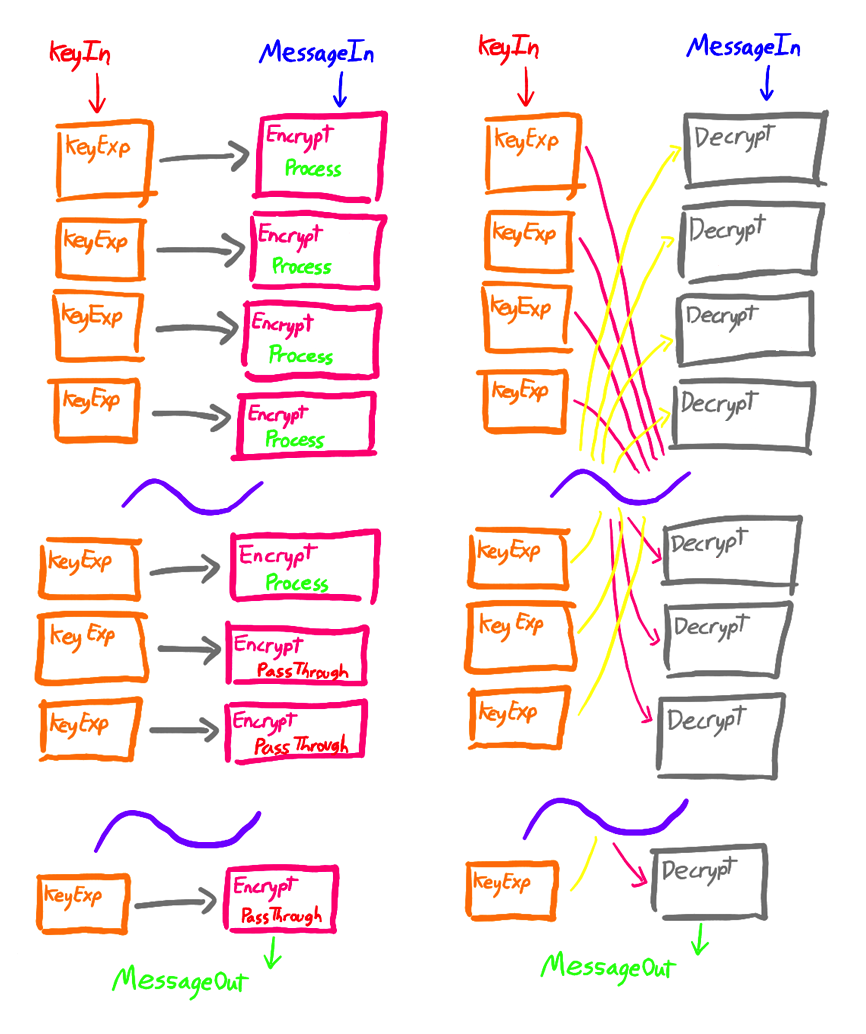 KeyIn
MessageIn
KeyExp
Encrypt
Process
KeyExp
Encrypt
Process
KeyExp
Encrypt
Process
KeyExp
Encrypt
Process
KeyExp
Encrypt
Process
KeyExp
Encrypt
PassThrough
KeyExp
Encrypt
PassThrough
KeyExp
Encrypt
PassThrough
MessageOut
KeyIn
MessageIn
KeyExp
Decrypt
KeyExp
Decrypt
KeyExp
Decrypt
KeyExp
Decrypt
KeyExp
Decrypt
KeyExp
Decrypt
KeyExp
Decrypt
KeyExp
Decrypt
MessageOut